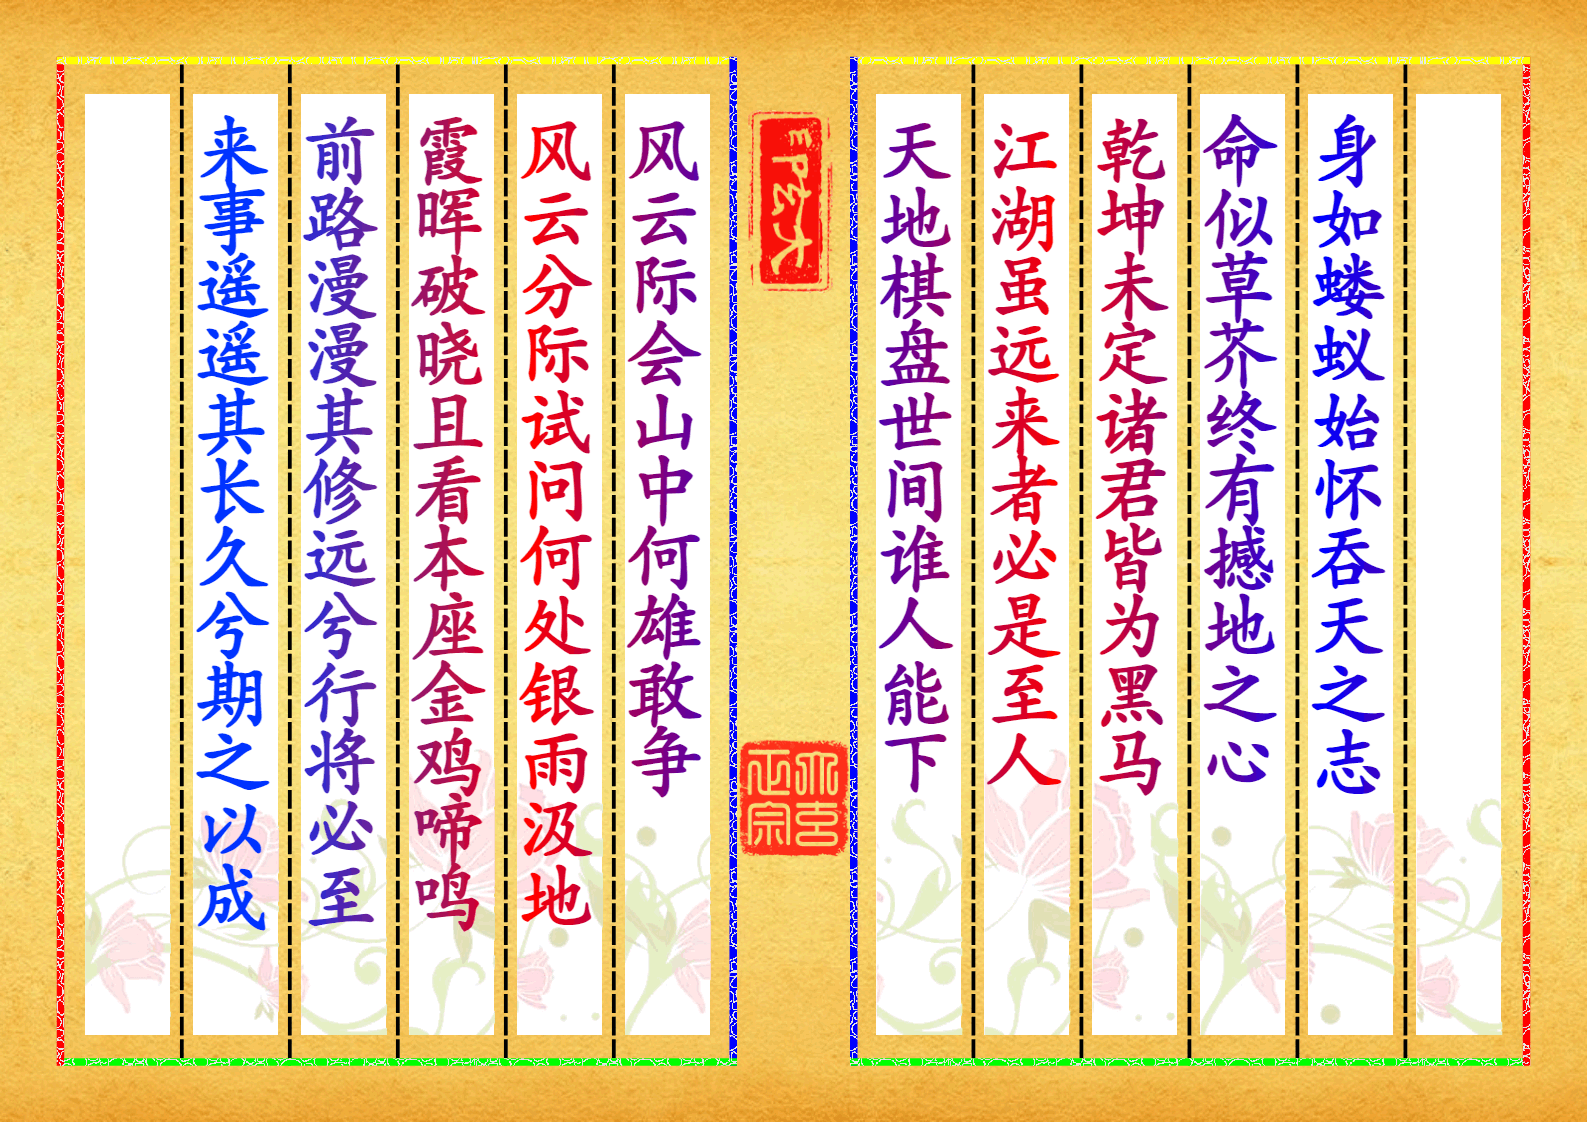 身如蝼蚁始怀吞天之志
命似草芥终有撼地之心
乾坤未定诸君皆为黑马
江湖虽远来者必是至人
天地棋盘世间谁人能下
风云际会山中何雄敢争
风云分际试问何处银雨汲地
霞晖破晓且看本座金鸡啼鸣
前路漫漫其修远兮行将必至
来事遥遥其长久兮期之以成